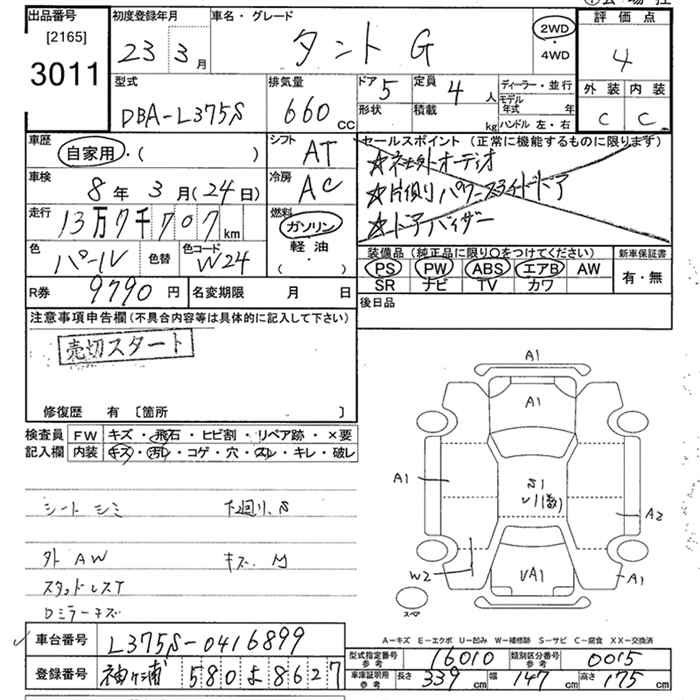 出品番号
[2165]
3011
初度登録年月
23 3月
車名・グレード
タント G
2WD
・
4WD
評価点
4
外装 内装
C C
型式
DBA-L375S
排気量
660 CC
ドア 5
形状
定員 4 人
積載 kg
ディーラー・並行
モデル年式 年
ハンドル 左・右
車歴
自家用・( )
シフト AT
車検
8年 3月(24日)
冷房 AC
走行
13万7千707 km
燃料
ガソリン
軽油
( ・ )
色 パール
色替
色コード W24
セールスポイント (正常に機能するものに限ります)
☆社外オーディオ
☆片側パワースライドドア
☆ドアバイザー
装備品(純正品に限り○をつけてください)
PS PW ABS エアB AW
SR ナビ TV カワ
新車保証書
有・無
R券 9790円
名変期限 月 日
後日品
注意事項申告欄(不具合内容等は具体的に記入して下さい)
売切スタート
修復歴 有 〔箇所 〕
検査員
記入欄
FW キズ・飛石・ヒビ割・リペア跡・×要
内装 キズ・汚レ・コゲ・穴・スレ・キレ・破レ
シート シミ 下廻り、S
外 AW キズ、M
スタッドレスT
Dミラーキズ
A1
A1
A1
S1
A2
W2
UA1
A1
スペア
A-キズ E-エクボ U-凹み W-補修跡 S-サビ C-腐食 XX-交換済
車台番号 L375S-0416899
登録番号 袖ヶ浦 580 よ 8627
型式指定番号 参考 16010
類別区分番号 参考 0015
車庫証明用 参考 長さ 339 幅 147 高さ 175 cm